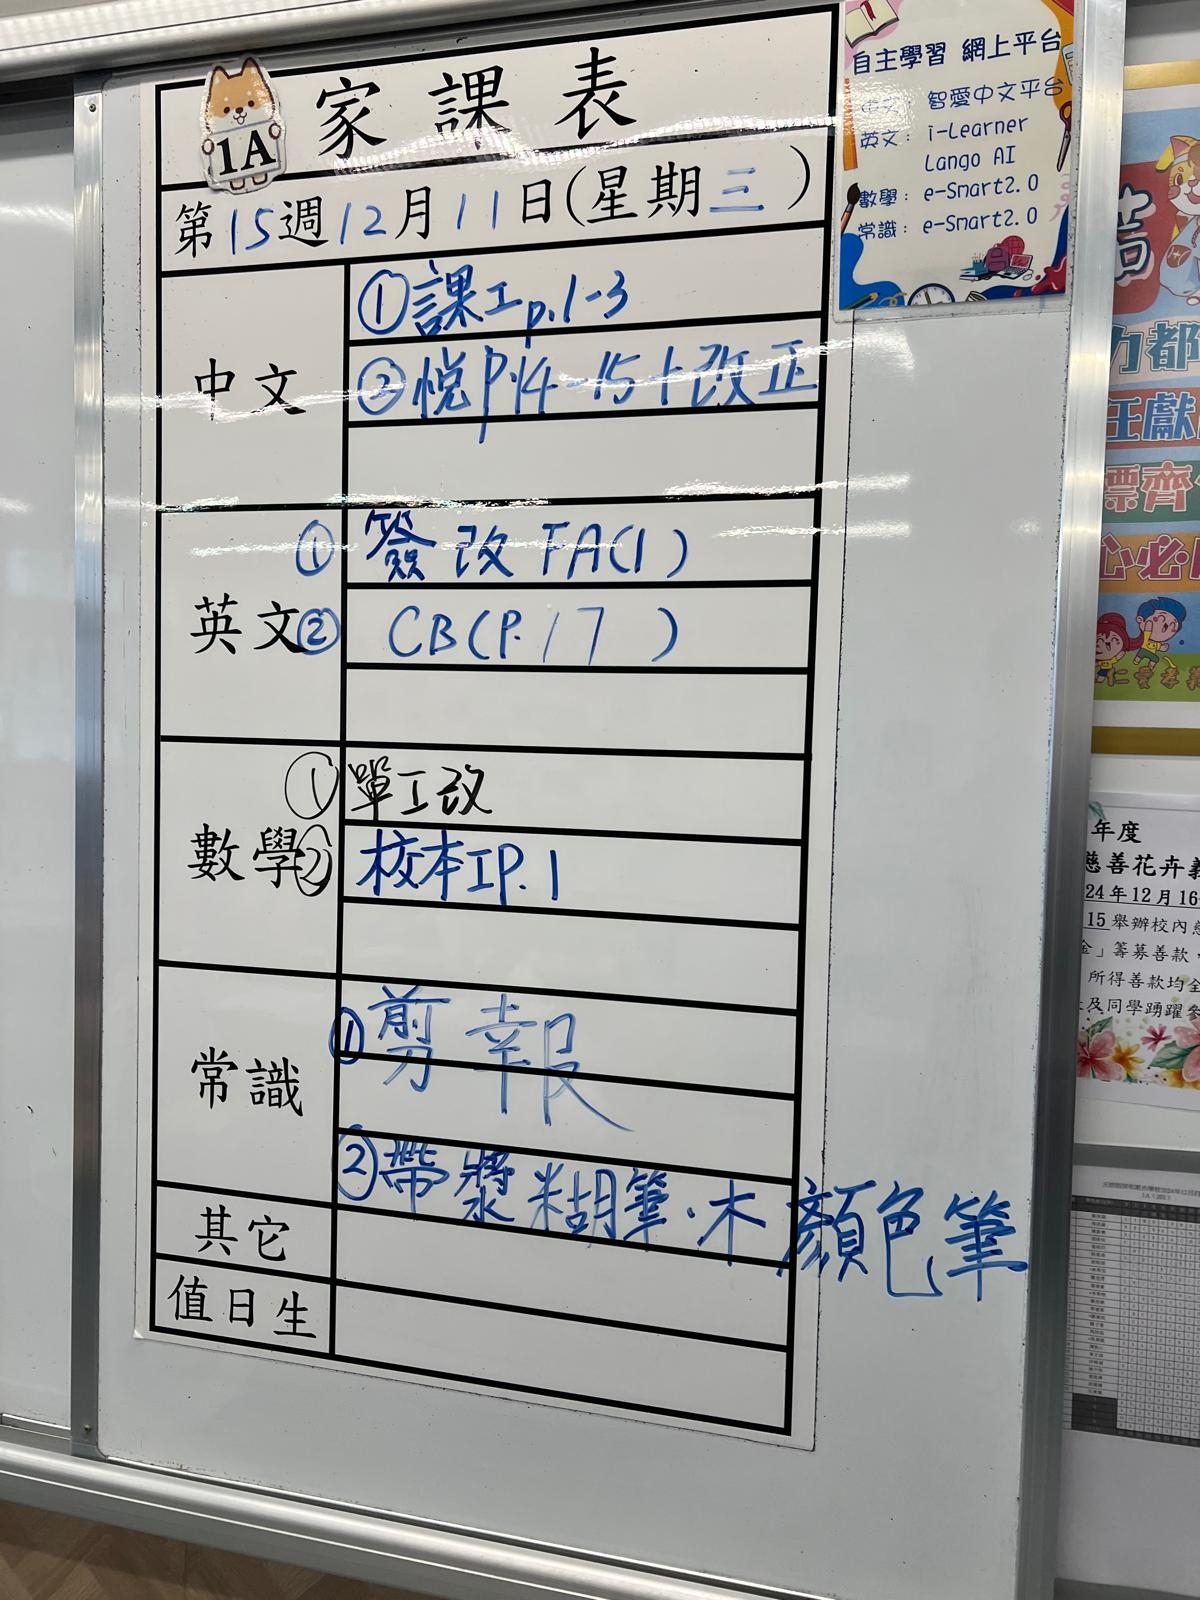 家課表
1A
第15週12月11日(星期三)
中文
①課工p.1-3
②悅P.14-15+改正
英文
①簽改FA(1)
②CB(P.17)
數學
①單工改
②校本工P.1
常識
①剪報
②帶漿糊筆.木顏色筆
其它
值日生
自主學習 網上平台
中文: 智愛中文平台
英文: i-Learner
Lango AI
數學: e-Smart2.0
常識: e-Smart2.0
力都
標齊
心必
仁愛孝
年度
慈善花卉義
24年12月16
15舉辦校內慈
金」籌募善款
所得善款均全
及同學踴躍參